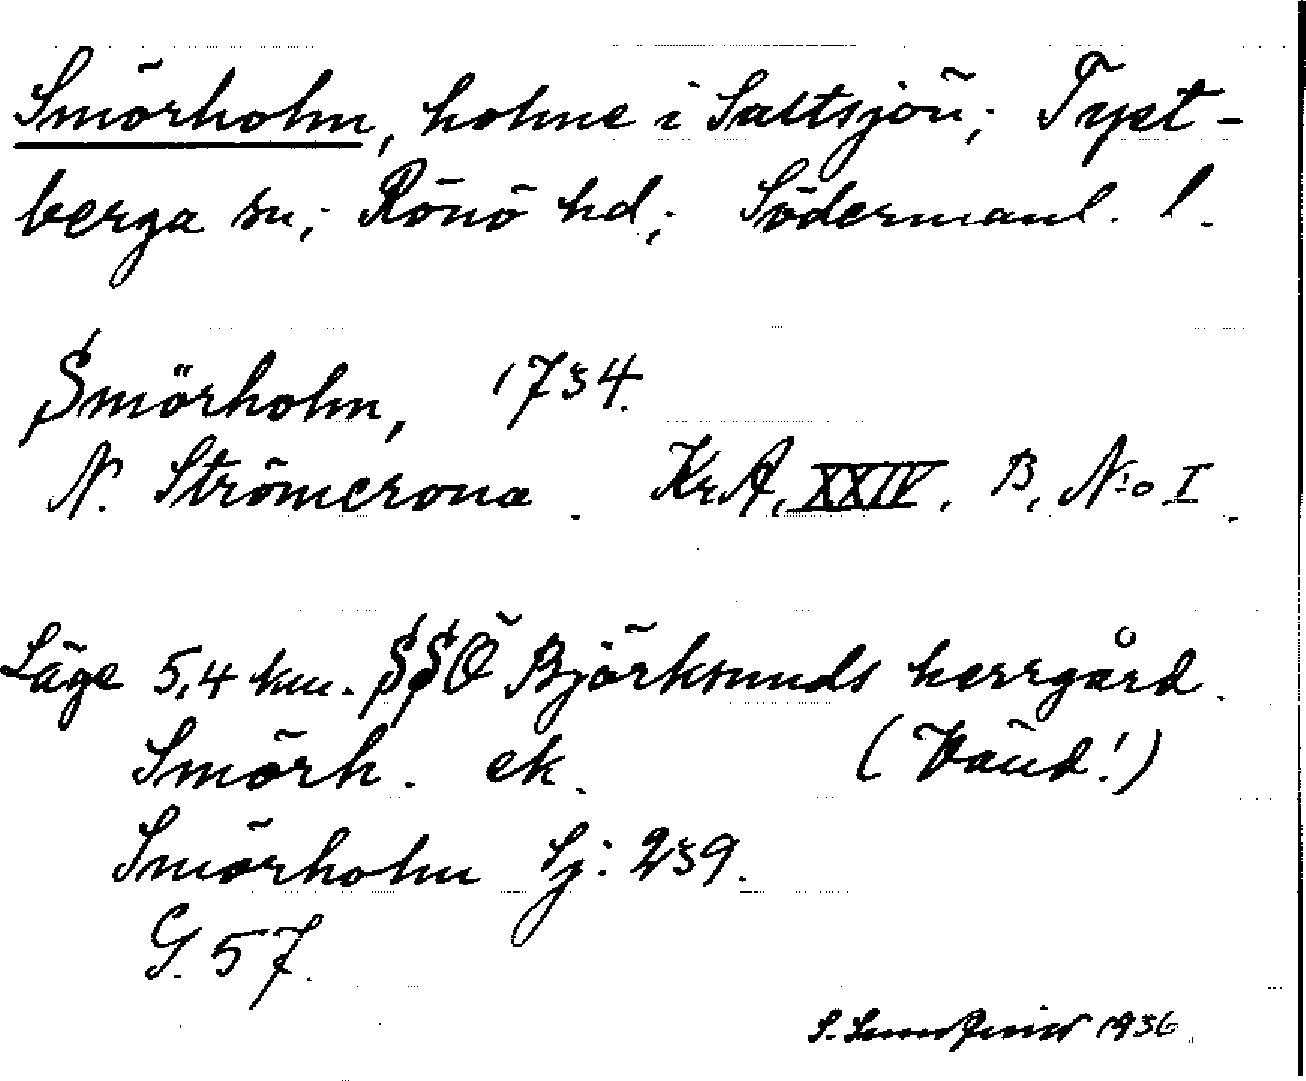 Smörholm, holme i Saltsjön; Tyst-
berga sn; Rönö hd; Södermanl. l.
Smörholm, 1734.
N. Strömcrona. KrA, XXIV. B, N:o I.
Läge 5,4 km. SSÖ Björksunds herrgård.
Smörh. ek. (Vänd!)
Smörholm Sj: 239.
G. 57.
S. 1936